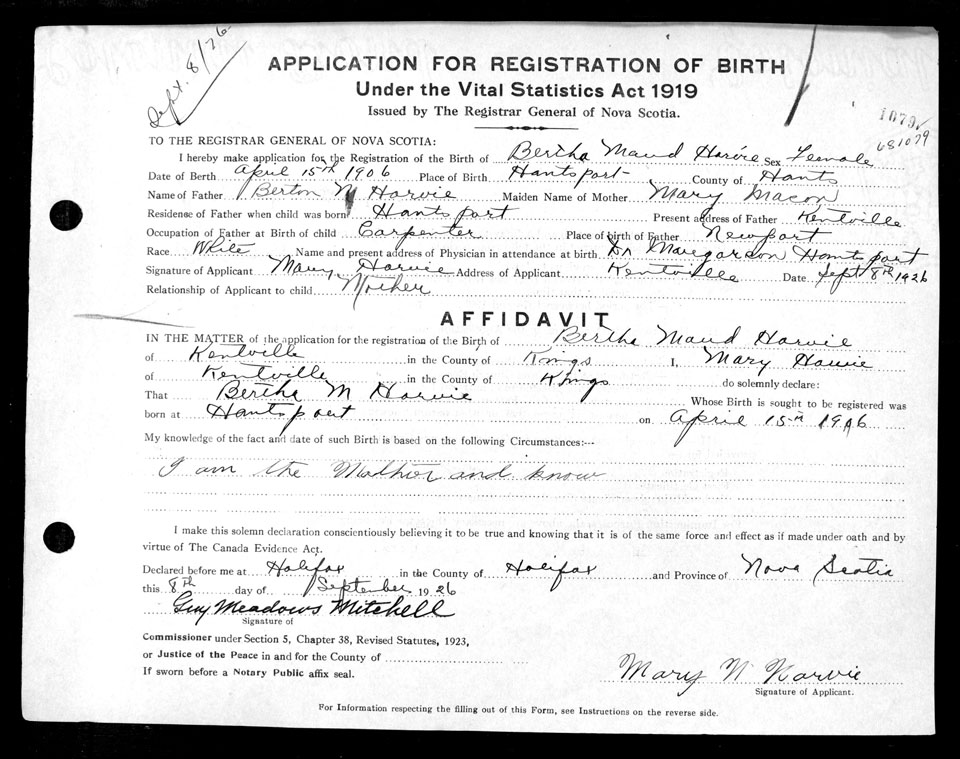 Sept. 8/26
APPLICATION FOR REGISTRATION OF BIRTH
Under the Vital Statistics Act 1919
Issued by The Registrar General of Nova Scotia.
1079
681079
TO THE REGISTRAR GENERAL OF NOVA SCOTIA:
I hereby make application for the Registration of the Birth of Bertha Maud Harvie Sex Female
Date of Birth April 15th 1906 Place of Birth Hantsport County of Hants
Name of Father Berton M Harvie Maiden Name of Mother Mary Macon
Residense of Father when child was born Hantsport Present address of Father Kentville
Occupation of Father at Birth of child Carpenter Place of birth of Father Newport
Race White Name and present address of Physician in attendance at birth Dr Margarson Hantsport
Signature of Applicant Mary Harvie Address of Applicant Kentville Date Sept 8th 1926
Relationship of Applicant to child Mother
AFFIDAVIT
IN THE MATTER of the application for the registration of the Birth of Bertha Maud Harvie
of Kentville in the County of Kings I, Mary Harvie
of Kentville in the County of Kings do solemnly declare:
That Bertha M Harvie Whose Birth is sought to be registered was
born at Hantsport on April 15th 1906
My knowledge of the fact and date of such Birth is based on the following Circumstances:--
I am the Mother and know
I make this solemn declaration conscientiously believing it to be true and knowing that it is of the same force and effect as if made under oath and by
virtue of The Canada Evidence Act.
Declared before me at Halifax in the County of Halifax and Province of Nova Scotia
this 8th day of September 1926
Guy Meadows Mitchell
Signature of
Commissioner under Section 5, Chapter 38, Revised Statutes, 1923,
or Justice of the Peace in and for the County of
If sworn before a Notary Public affix seal.
Mary N Harvie
Signature of Applicant.
For Information respecting the filling out of this Form, see Instructions on the reverse side.